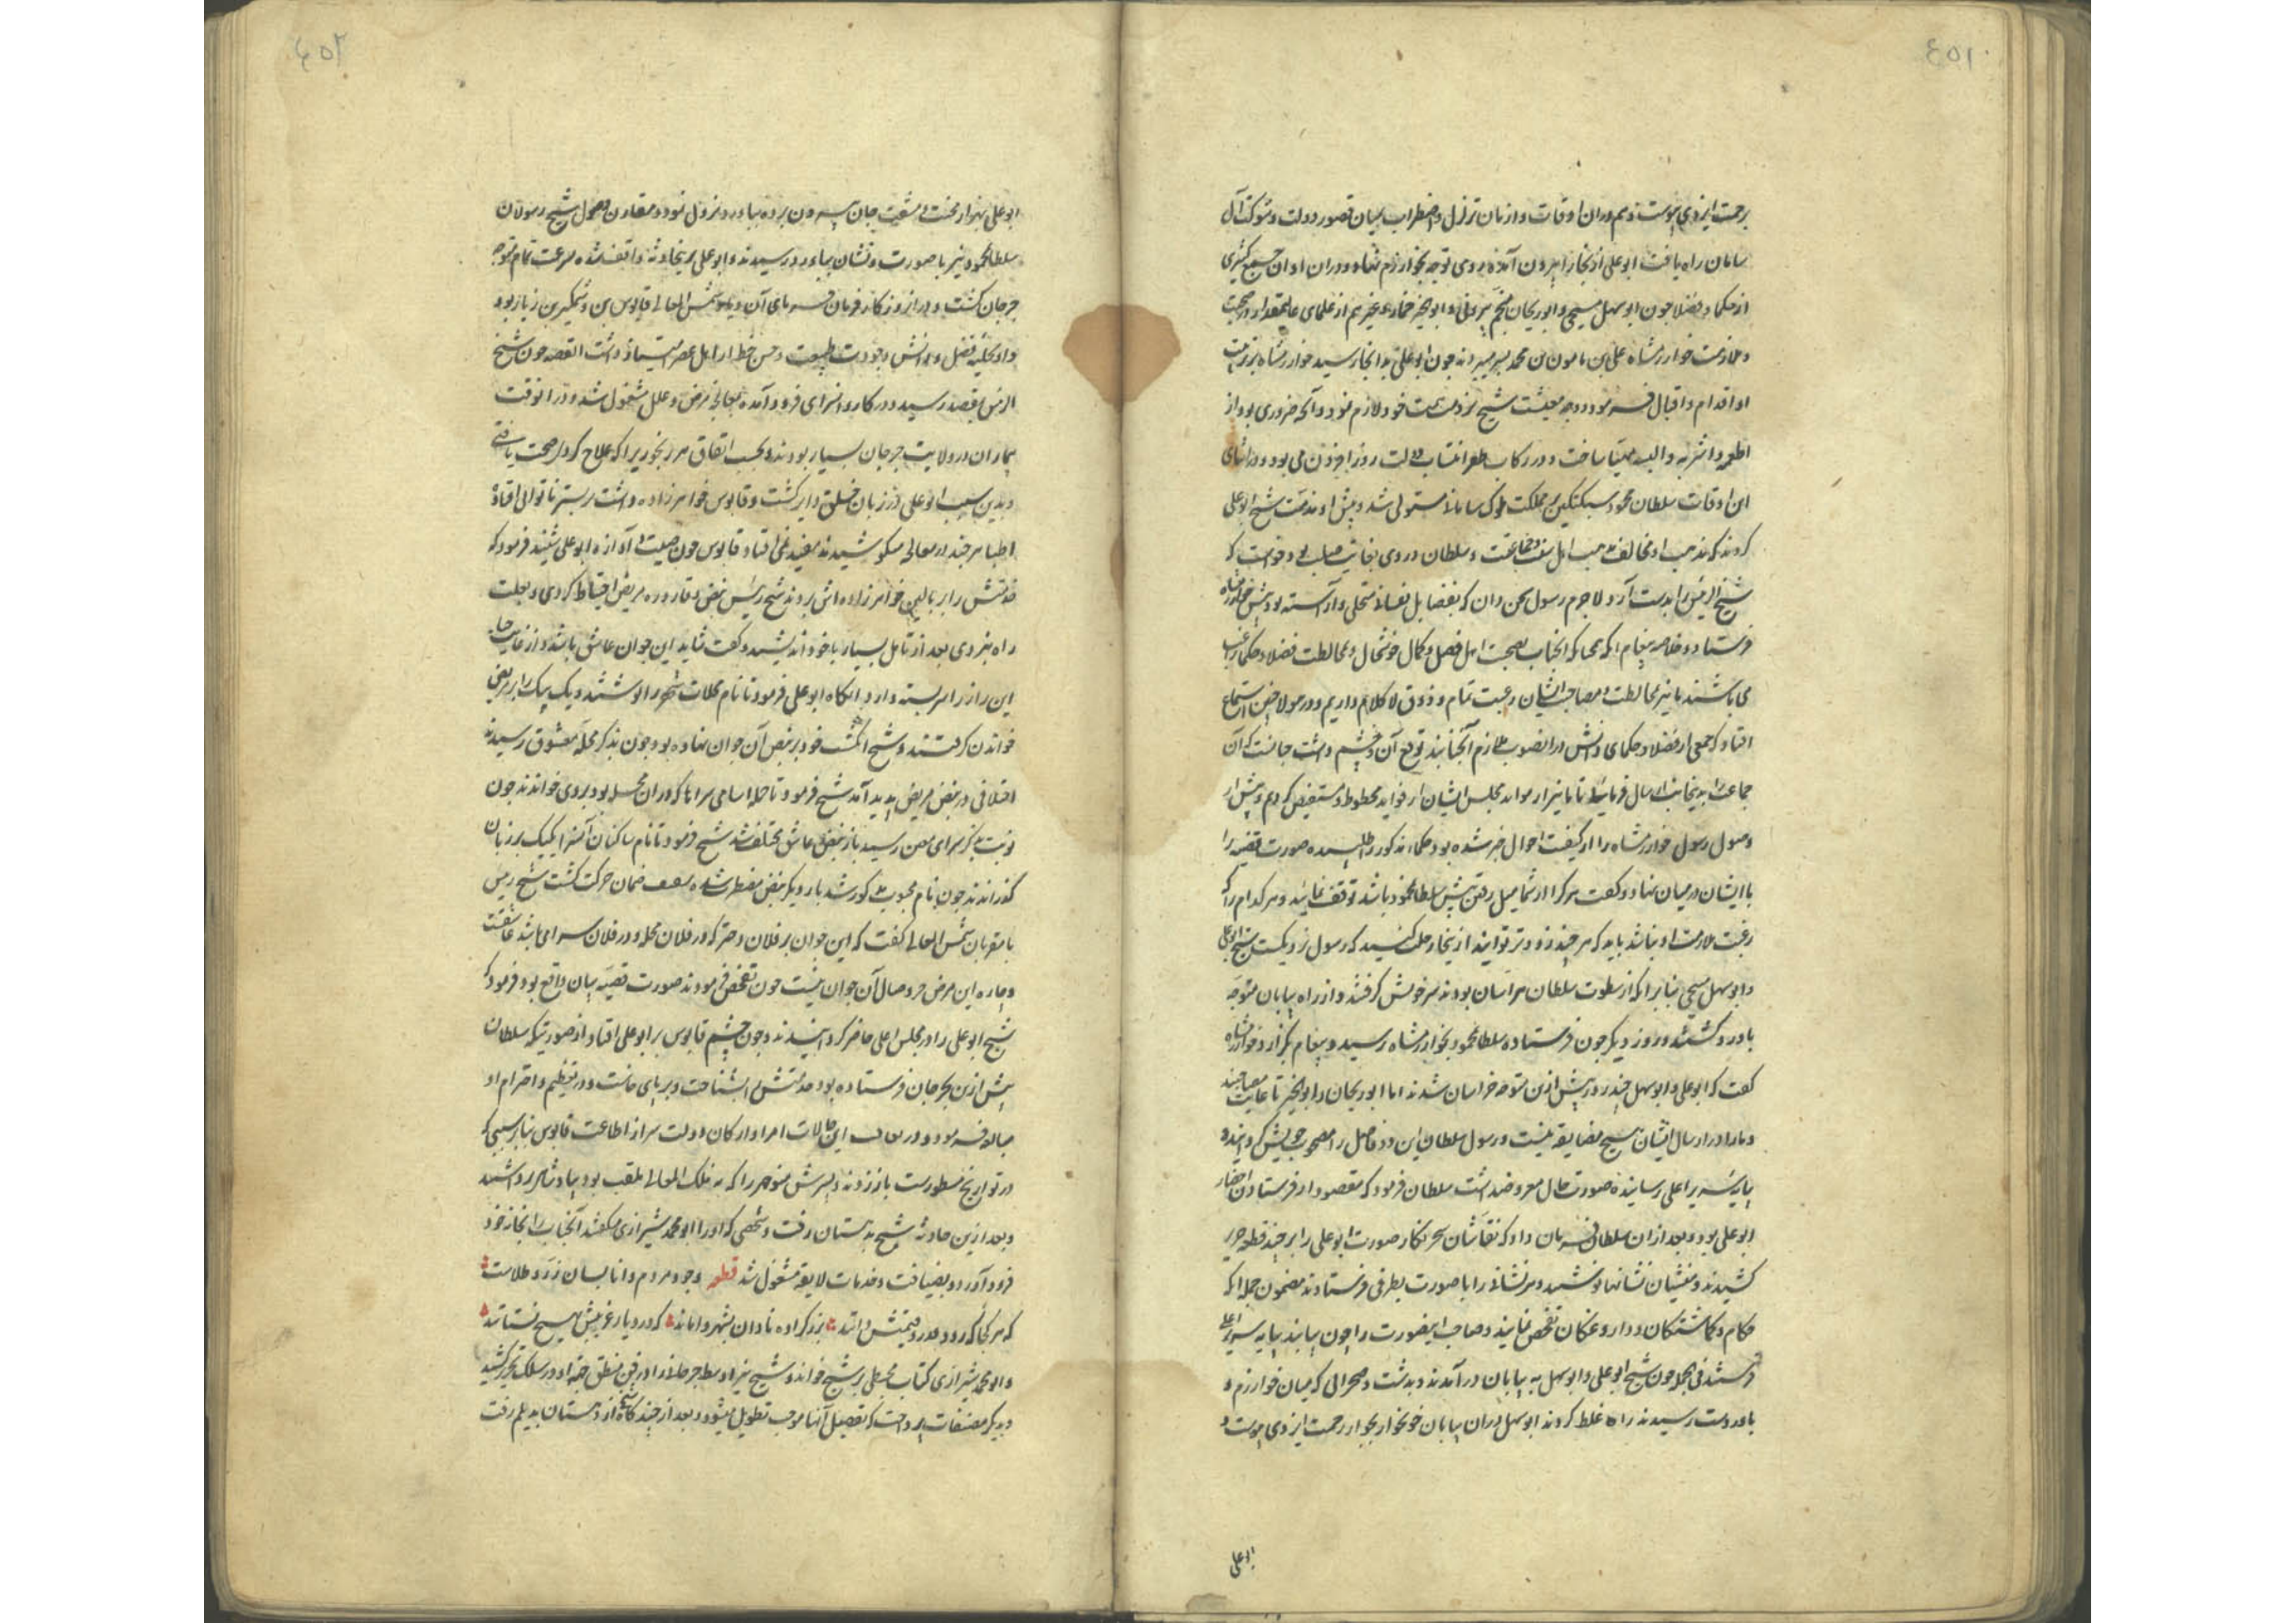 ٤٥١
برحمت ایزدی پیوست و هم دران اوقات و ازمان تزلزل و اضطراب بمیان قصور دولت و شوکت آل
سامان راه یافت ابوعلی از بخارا بیرون آمده روی توجه بخوارزم نهاد و دران اوان جمع کثیری
از حکما و فضلا چون ابوسهل مسیحی و ابوریحان منجم بیرونی و ابوالخیر خمار و غیرهم از علمای عالیمقدار در صحبت
و ملازمت خوارزمشاه علی بن مامون بن محمد بسر میبردند چون ابوعلی بدانجا رسید خوارزمشاه بتربیت
او اقدام و اقبال فرمود و وجه معیشت شیخ بر ذمت همت خود لازم نمود و آنچه ضروری بود از
اطعمه و اشربه و البسه مهیا ساخت و در رکاب ظفر انتساب دولت روز افزون می بود و در اثنای
این اوقات سلطان محمود سبکتکین بر مملکت ملوک سامانی مستولی شد و پیش او مذمت شیخ ابوعلی
کردند که مذهب او مخالف مذهب اهل سنت و جماعتست و سلطان در وی بغایت صلب بود خواست که
شیخ الرئیس را بدست آرد لاجرم رسول سخن دان که بفضایل نفسانی متحلی و آراسته بود پیش خوارزمشاه
فرستاد و خلاصه پیغام آنکه بمحاکه آنجناب بصحبت اهل فضل و کمال خوشحال و بمخالطت فضلا و حکما راغب
می باشند ما نیز بمخالطت و مصاحبت ایشان رغبت تمام و ذوق لا کلام داریم و درینولا چنین استماع
افتاد که جمعی از فضلا و حکمای دانش در آنصوب ملازم آنجنابند توقع آن و چشم داشت چنانست که آن
جماعت را بدینجانب ارسال فرمایند تا ما نیز از موائد مجلس ایشان از فواید محظوظ و مستفیض گردیم و پیش از
وصول رسول خوارزمشاه را از کیفیت احوال خبر شده بود حکماء مذکور را طلبیده صورت قضیه را
با ایشان در میان نهاد و گفت هر کرا از شما میل رفتن پیش سلطان محمود باشد توقف نمایید و هر کدام را که
رغبت ملازمت او نباشد باید که هر چند زودتر توانید از اینجا رحلت کنید که رسول نزدیکست شیخ ابوعلی
و ابوسهل مسیحی بنابر آنکه از سطوت سلطان هراسان بودند سر خویش گرفتند و از راه بیابان متوجه
باورد گشتند و روز دیگر چون فرستاده سلطان محمود بخوارزمشاه رسید و پیغام بگزارد خوارزمشاه
گفت که ابوعلی و ابوسهل چند روز پیش ازین متوجه خراسان شدند اما ابوریحان و ابوالخیر تا غایت مصاحبند
و ما را در ارسال ایشان هیچ مضایقه نیست و رسول سلطان این دو فاضل را مصحوب خویش گردانیده
بپایه سریر اعلی رسانیده صورت حال معروض داشت سلطان فرمود که مقصود از فرستادن احضار
ابوعلی بود و بعد از ان سلطان فرمان داد که نقاشان سحر نگار صورت ابوعلی را بر چند قطعه حریر
کشیدند و منشیان نشانها نوشتند و هر نشانی را با صورت بطرفی فرستادند مضمون جمله آنکه
حکام و گماشتگان و داروغگان تفحص نمایند و صاحب اینصورت را چون بیابند بپایه سریر اعلی
فرستند فی الجمله چون شیخ ابوعلی و ابوسهل به بیابان درآمدند و بدشت و صحرائی که میان خوارزم و
باوردست رسیدند راه غلط کردند ابوسهل دران بیابان خونخوار بجوار رحمت ایزدی پیوست و
ابوعلی
٤٥٢
ابوعلی بهزار محنت و مشقت جان بیرون برده بباورد نزول نمود و مقارن وصول شیخ رسولان
سلطان محمود نیز با صورت و نشان بباورد رسیدند و ابوعلی برین حادثه واقف شده بسرعت تمام متوجه
جرجان گشت و در آن روزگار فرمان فرمای آن دیار شمس المعالی قابوس بن وشمگیر بن زیار بود
و او بحلیه فضل و دانش و جودت طبیعت و حسن خط از اهل عصر امتیاز داشت القصه چون شیخ
الرئیس بمقصد رسید و در کاروانسرای فرود آمده بمعالجه مرض و علل مشغول شد و در انوقت
بیماران در ولایت جرجان بسیار بودند و بحسب اتفاق هر رنجوری را که علاج کرد صحت یافتی
و بدین سبب ابوعلی در زبان خلق دایر گشت و قابوس خواهر زاده داشت بر بستر ناتوانی افتاده
اطبا هر چند در معالجه میکوشیدند مفید نمی افتاد قابوس چون صیت و آوازه ابوعلی شنید فرمود که
خدمتش را بر بالین خواهر زاده اش بردند شیخ رئیس نبض و قاروره مریض احتیاط کردی و بعلت
راه نبردی بعد از تامل بسیار با خود اندیشید و گفت شاید این جوان عاشق باشد و از غایت حیا
این راز را سربسته دارد آنگاه ابوعلی فرمود تا نام محلات شهر را نوشتند و یک یک را بر مریض
خواندن گرفتند و شیخ انگشت خود بر نبض آن جوان نهاده بود چون بذکر محله معشوق رسیدند
اختلافی در نبض مریض پدید آمد شیخ فرمود تا جمله اسامی سراها که دران محله بود بر وی خواندند چون
نوبت بذکر سرای معین رسید باز نبض عاشق مختلف شد شیخ فرمود تا نام ساکنان آنسرا یکیک بر زبان
گذراندند چون نام محبوب مذکور شد بار دیگر نبض مضطرب شده بضعف همان حرکت گشت شیخ رئیس
با مقربان شمس المعالی گفت که این جوان بر فلان دختر که در فلان محله و در فلان سرا می باشد عاشقست
و چاره این مرض جز وصال آن جوان نیست چون تفحص نمودند صورت قضیه بیان واقع بود فرمود که
شیخ ابوعلی را در مجلس اعلی حاضر گردانیدند و چون چشم قابوس بر ابوعلی افتاد از صورتیکه سلطان
پیش ازین بجرجان فرستاده بود خدمتش را بشناخت و بر پای خاست و در تعظیم و احترام او
مبالغه فرمود و در خلال این حالات امرا و ارکان دولت سر از اطاعت قابوس بنابر سببی که
در تواریخ مسطورست باز زدند و پسرش منوچهر را که به فلک المعالی ملقب بود بپادشاهی برداشتند
و بعد ازین حادثه شیخ بدهستان رفت و شخصی که او را ابو محمد شیرازی میگفتند آنجناب را بخانه خود
فرود آورد و بضیافت و خدمات لایقه مشغول شد قطعه وجود مردم دانا بسان زر و طلاست
که هر کجا که رود قدر و قیمتش دانند بزرگ زاده نادان بشهر وا ماند که در دیار غریبش بهیچ نستانند
و ابو محمد شیرازی کتاب مجسطی بر شیخ خواند و شیخ نیز اوسط جرجانی را در فن منطق جهة او در سلک تحریر کشید
و بدیگر مصنفات پرداخت که تفصیل آنها موجب تطویل میشود و بعد از چند گاه شیخ از دهستان بدیلم رفت